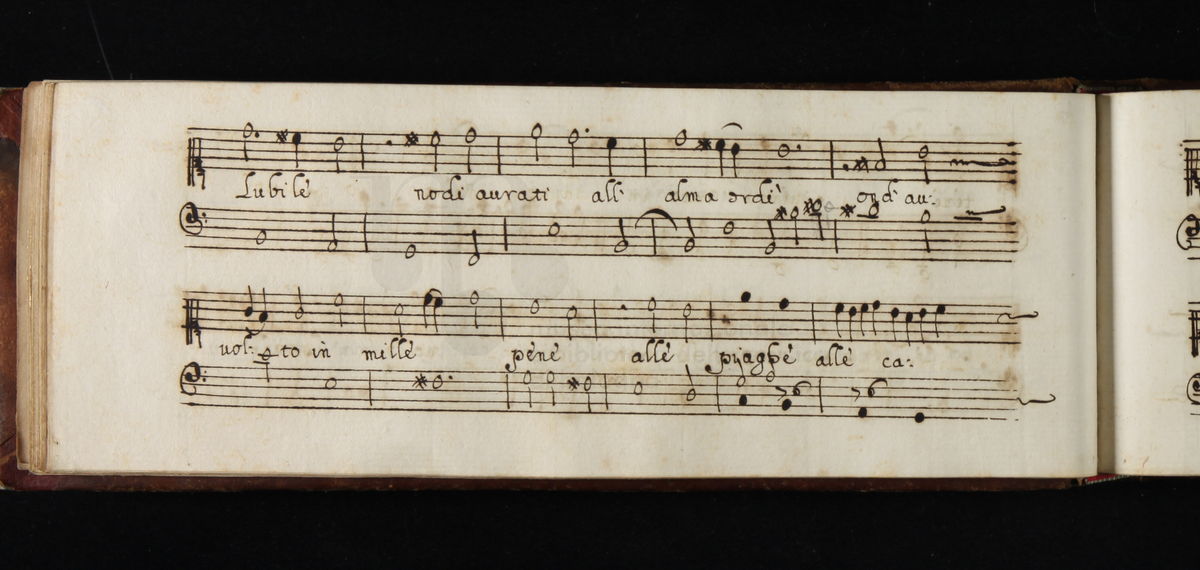 Lubile nodi aurati all' alma ordì ond' au:
uol: to in mille pene alle pijaghe alle ca: